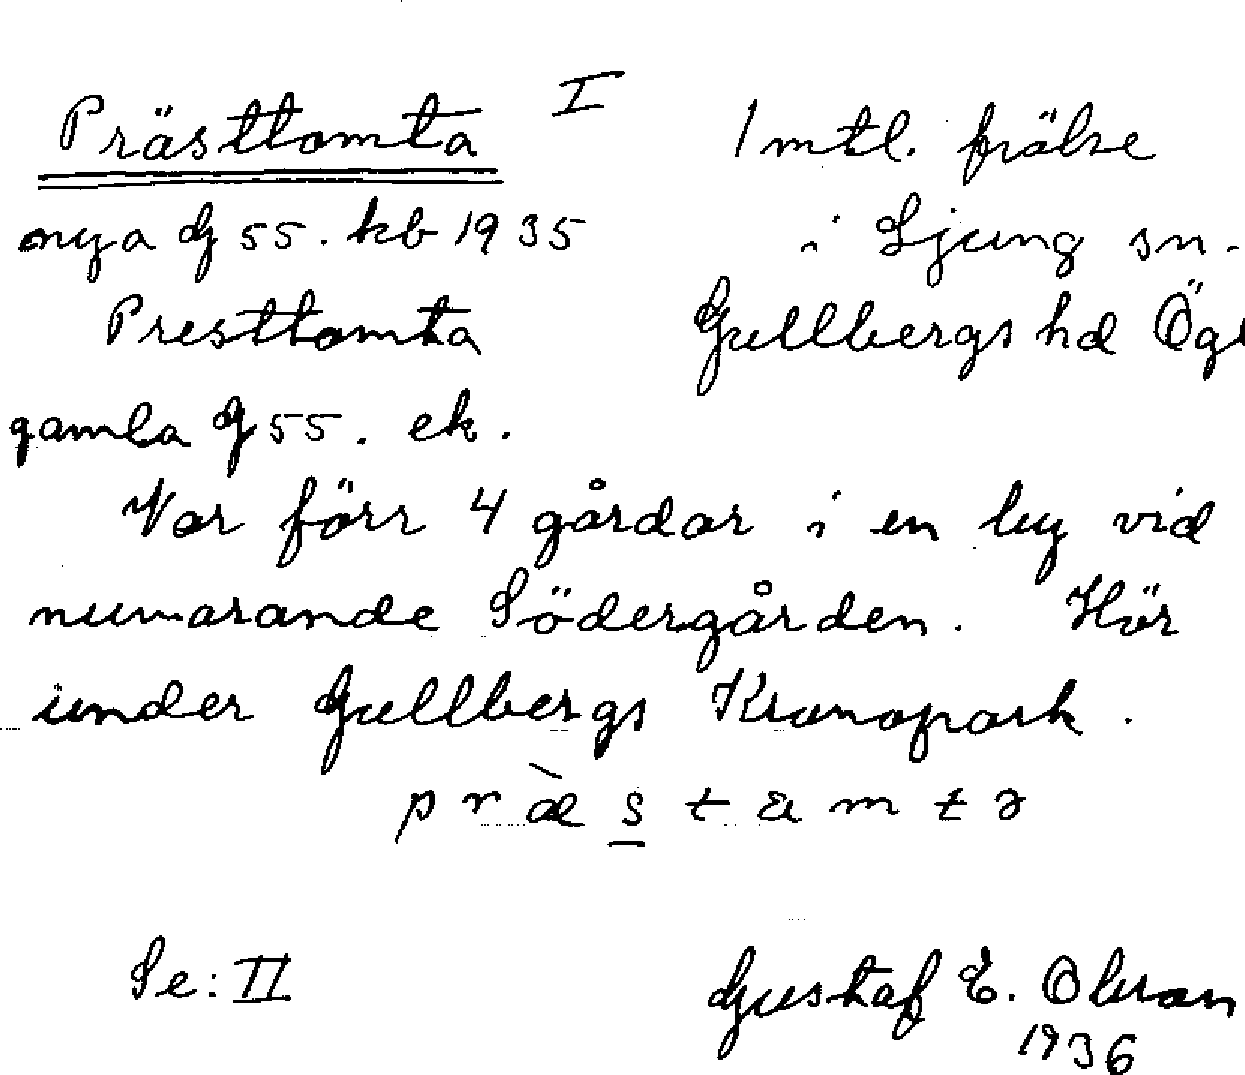 Prästtomta I
1 mtl. frälse
nya G 55. kb 1935
i Ljung sn.
Presttomta
Gullbergs hd Ögl
gamla G 55. ek.
Var förr 4 gårdar i en by vid
nuvarande Södergården. Hör
under Gullbergs Kronopark.
Se: II
Gustaf E. Olsson
1936